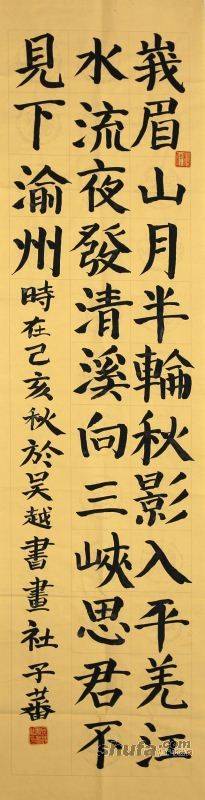 峩眉山月半輪秋影入平羌江
水流夜發清溪向三峽思君不
見下渝州時在己亥秋於吴越書畫社子蕃
shufa.com